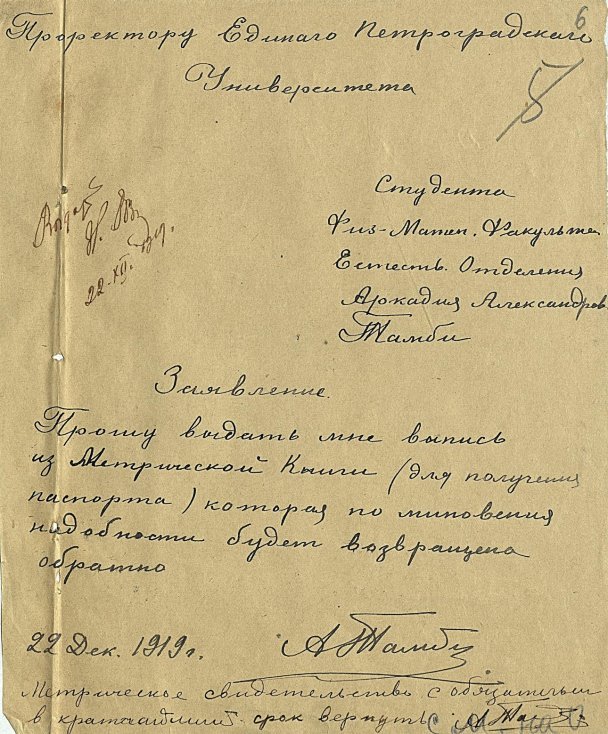 6
Проректору Единаго Петроградскаго
Университета
Студента
Физ-Матем. Факульте.
Естеств. Отделения
Аркадия Александров
Тамби
22-XII-1919г.
Заявление.
Прошу выдать мне выпись
из Метрической Книги (для получения
паспорта) которая по миновения
надобности будет возвращена
обратно
22 Дек. 1919г. АТамби
Метрическое свидетельство с обязательст
в кратчайший срок вернуть